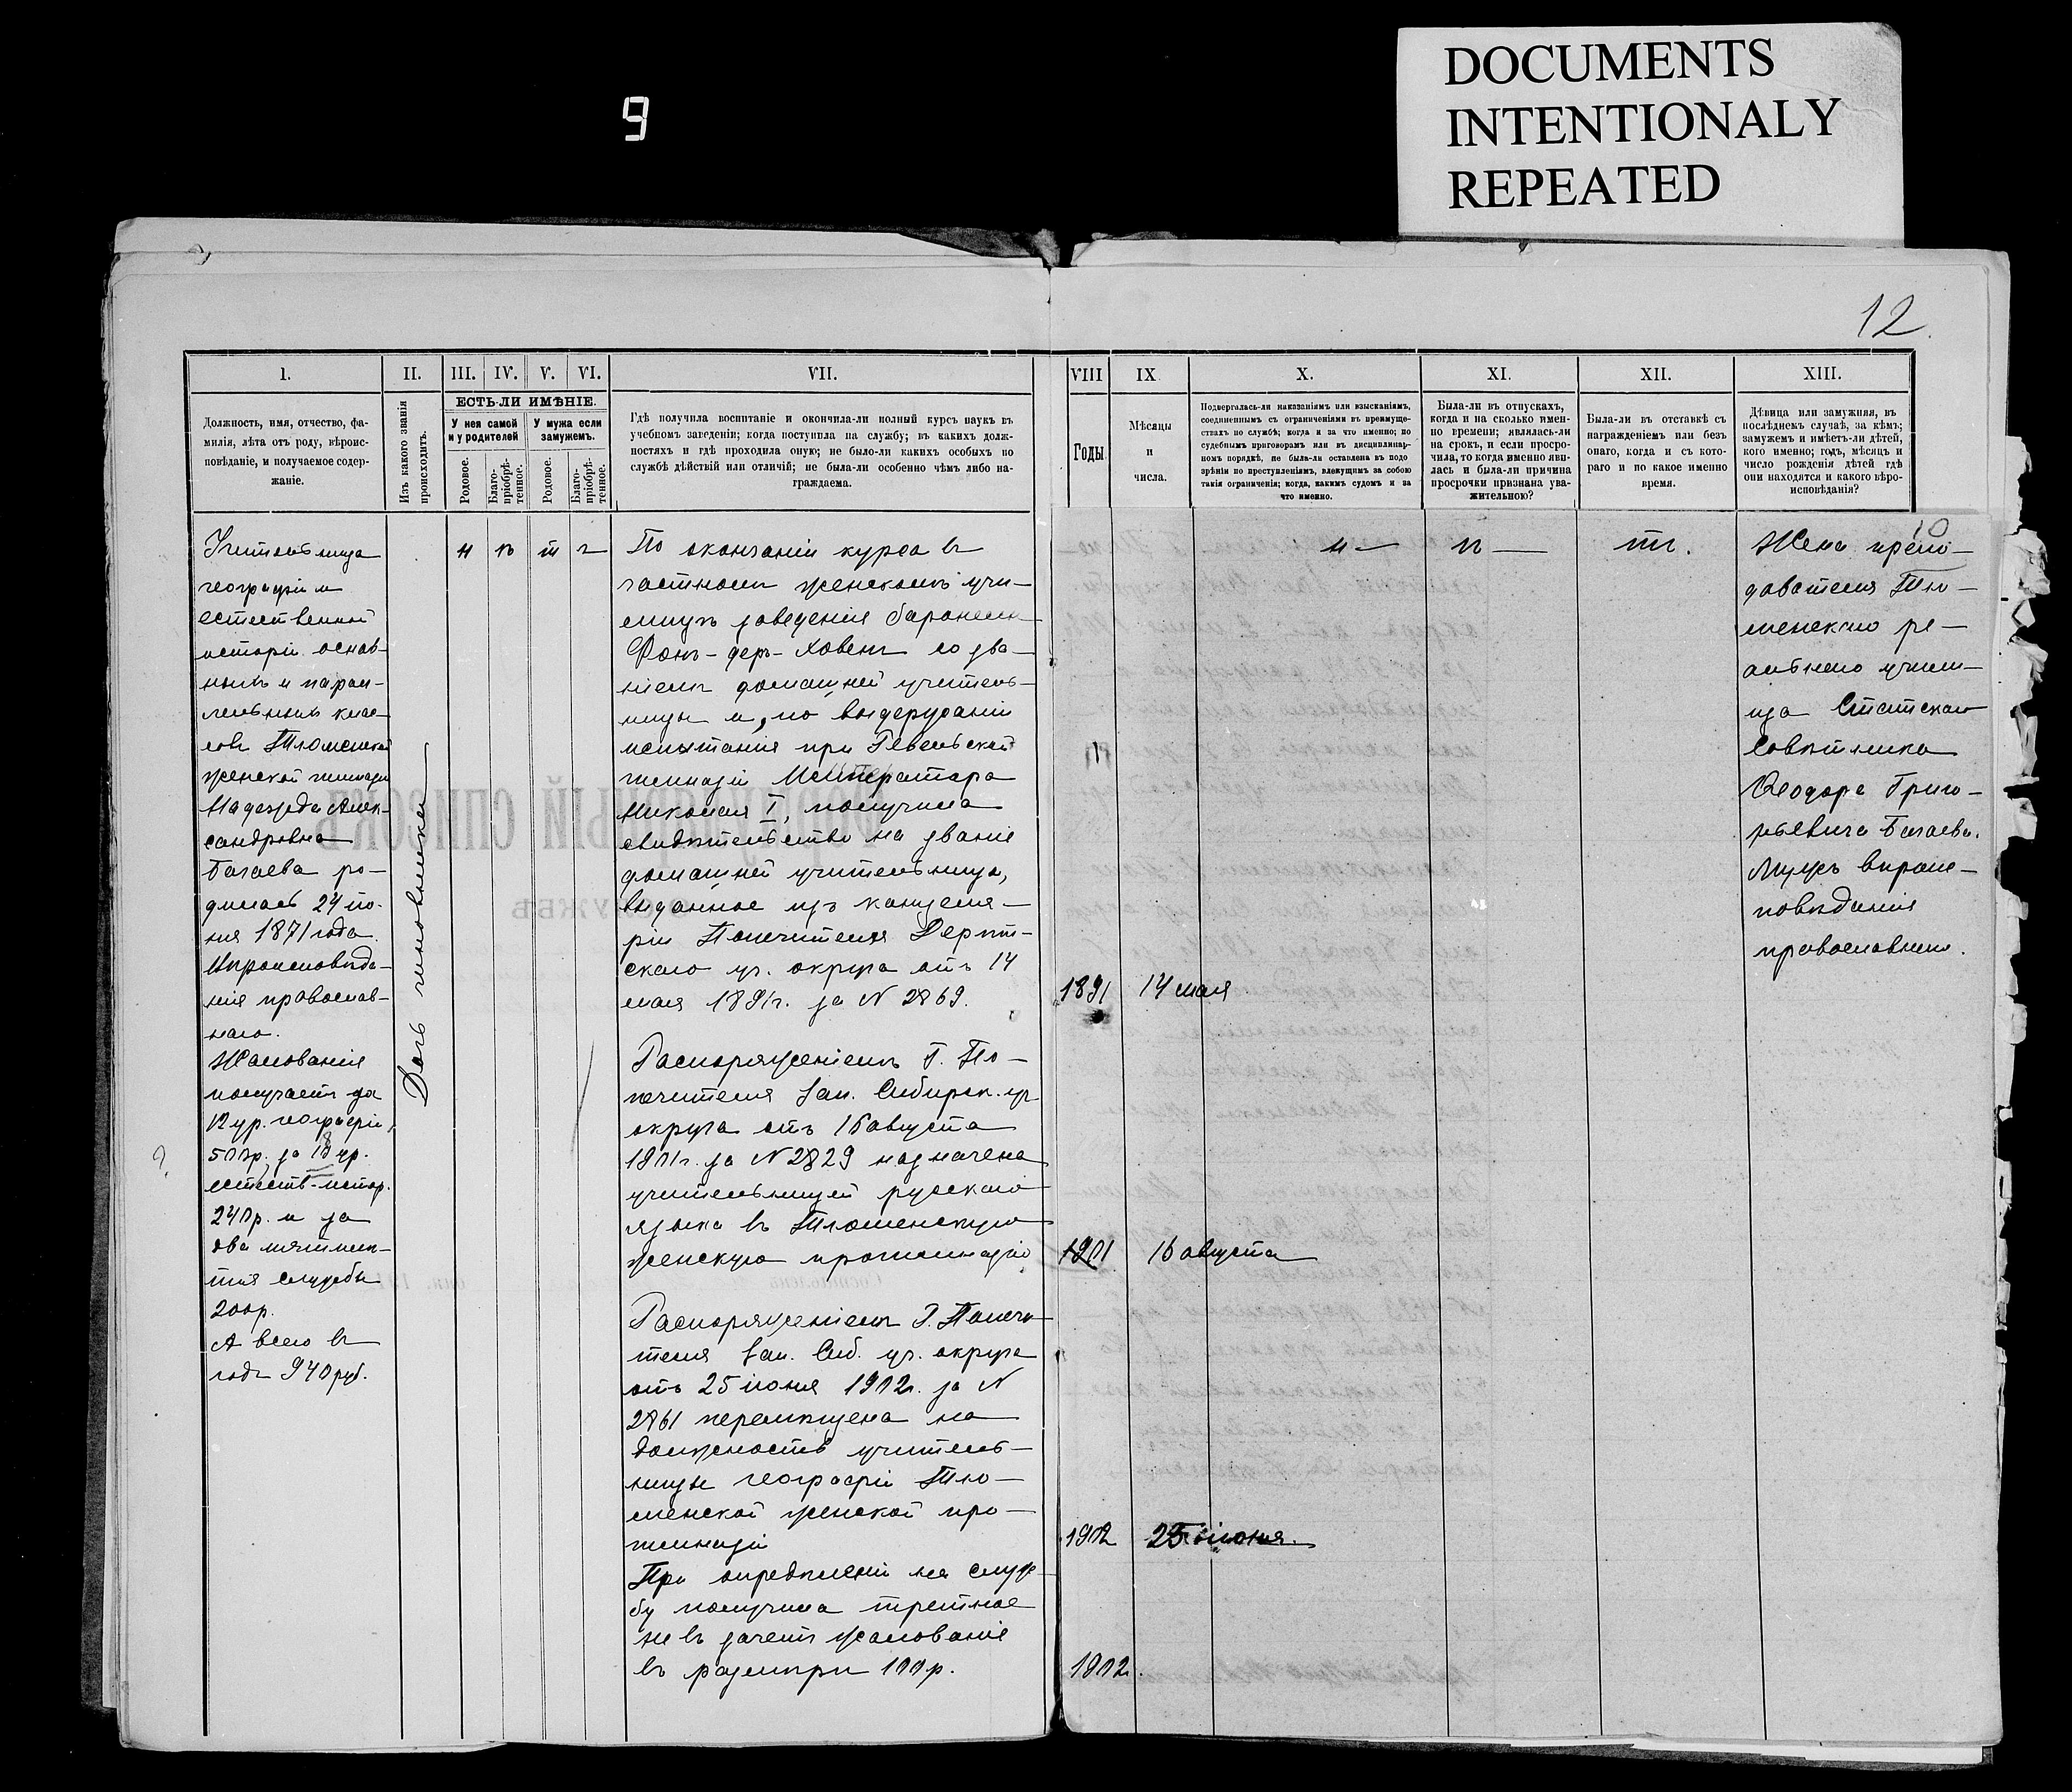 DOCUMENTS
INTENTIONALY
REPEATED
9
12
I.
II.
III.
IV.
V.
VI.
VII.
VIII
IX
X.
XI.
XII.
XIII.
Должность, имя, отчество, фа-
милія, лѣта отъ роду, вѣроис-
повѣданіе, и получаемое содер-
жаніе.
Изъ какого званія
происходитъ.
ЕСТЬ-ЛИ ИМѢНІЕ.
У нея самой
и у родителей
У мужа если
замужемъ.
Родовое.
Благо-
пріобрѣ-
тенное.
Родовое.
Благо-
пріобрѣ-
тенное.
Гдѣ получила воспитаніе и окончила-ли полный курсъ наукъ въ
учебномъ заведеніи; когда поступила на службу; въ какихъ долж-
ностяхъ и гдѣ проходила оную; не было-ли какихъ особыхъ по
службѣ дѣйствій или отличій; не была-ли особенно чѣмъ либо на-
граждаема.
Годы
Мѣсяцы
и
числа.
Подвергалась-ли наказаніямъ или взысканіямъ,
соединеннымъ съ ограниченіями въ преимуще-
ствахъ по службѣ; когда и за что именно; по
судебнымъ приговорамъ или въ дисциплинар-
номъ порядкѣ, не была-ли оставлена въ подо
зрѣніи по преступленіямъ, влекущимъ за собою
такія ограниченія; когда, какимъ судомъ и за
что именно.
Была-ли въ отпускахъ,
когда и на сколько имен-
но времени; являлась-ли
на срокъ, и если просро-
чила, то когда именно яви-
лась и была-ли причина
просрочки признана ува-
жительною?
Была-ли въ отставкѣ съ
награжденіемъ или безъ
онаго, когда и съ кото-
раго и по какое именно
время.
Дѣвица или замужняя, въ
послѣднемъ случаѣ, за кѣмъ;
замужемъ и имѣетъ-ли дѣтей,
кого именно; годъ, мѣсяцъ и
число рожденія дѣтей гдѣ
они находятся и какого вѣро-
исповѣданія?
Учительница
географіи и
естественной
исторіи основ-
ныхъ и парал-
лельныхъ клас-
совъ Тюменской
женской гимназіи
Надежда Алек-
сандровна
Багаева ро-
дилась 24 iю-
ня 1871 года.
Исповѣда-
нія православ-
наго.
Жалованія
получаетъ за
12 ур. географіи
500р. за ур.
естеств. истор.
240р. и за
два пятилѣ-
тія службы
200р.
А всего въ
годъ 940 руб.
Дочь чиновника
н ѣ т ъ
По окончаніи курса въ
частномъ женскомъ учи-
лищѣ заведенія баронессы
Фонъ-деръ-Ховенъ со зва-
ніемъ домашней учитель-
ницы и, по выдержаніи
испытанія при Ревельской
гимназіи Императора
Николая I, получила
свидѣтельство на званіе
домашней учительницы,
выданное изъ канцеля-
ріи Попечителя Дерпт-
скаго уч. округа отъ 14
мая 1891г. за N 2869.
Распоряженіемъ Г. По-
печителя Зап. Сибирск. уч.
округа отъ 16 августа
1901г. за N 2829 назначена
учительницей русскаго
языка въ Тюменскую
женскую прогимназію
Распоряженіемъ Г. Попечи-
теля Зап. Сиб. уч. округа
отъ 25 іюня 1902г. за N
2861 перемѣщена на
должность учитель-
ницы географіи Тю-
менской женской про-
гимназіи
При опредѣленіи на служ-
бу получила третное
не въ зачетъ жалованіе
въ размѣрѣ 100р.
1891 14 мая
1901 16 августа
1902 25 іюня.
1902.
н—
ѣ—
тъ.
10
Жена препо-
давателя Тю-
менскаго ре-
альнаго учили-
ща Статскаго
Совѣтника
Ѳеодора Григо-
рьевича Багаева.
Мужъ вѣроис-
повѣданія
православнаго.